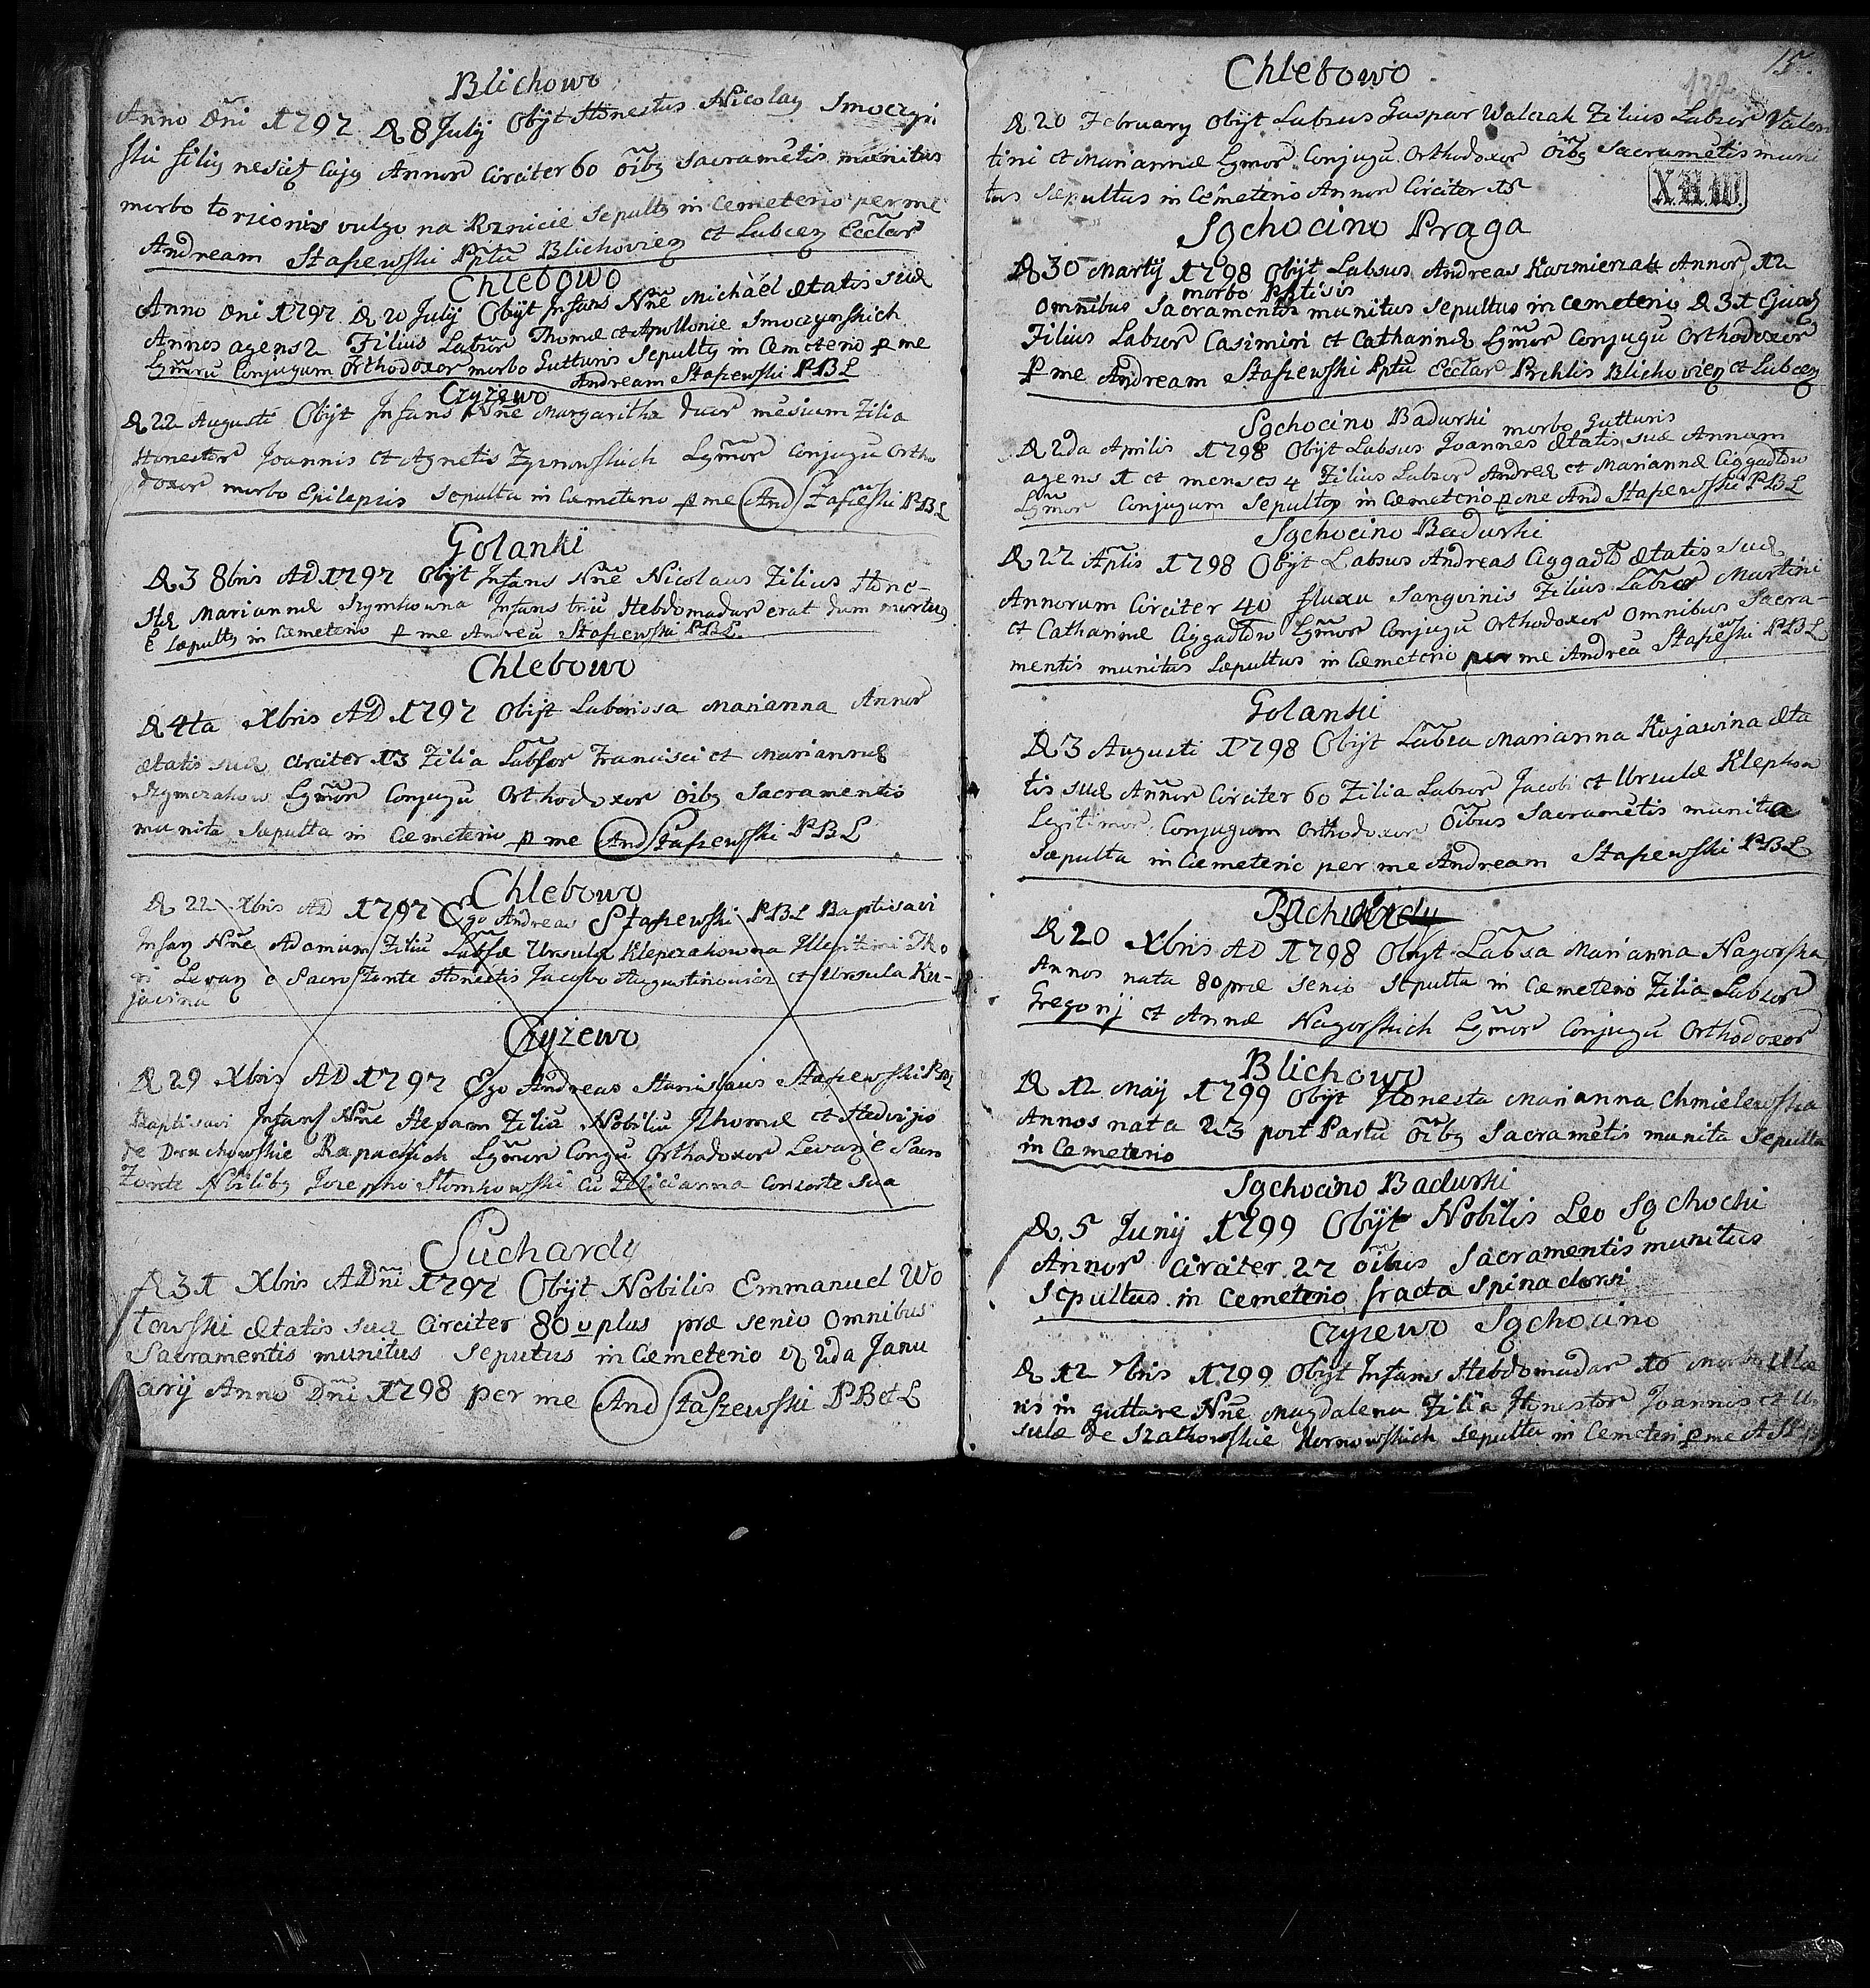 Blichowo
Anno Dni 1797 D 8 July Obijt Honestus Nicolaq Smoczyń
ski filiq nescit cujq Annor circiter 60 oibq Sacrametis munitus
morbo torsionis vulgo na Rznicie Sepultq in Cemeterio per me
Andream Staszewski Pptu Blichovien et Lubcen Ecclar
Chlebowo
Anno Dni 1797 D 20 July Obijt Infans Nñe Michaël ætatis suæ
Annos agens 2 Filius Labsor Thomæ et Apollonie Smoczynskich
Lgmoru Conjugum Orthodoxor morbo Gutturis Sepultq in Cemeterio p me
Andream Staszewski PBL
Czyżewo
D 22 Augusti Obijt Infans Nñe Margaritha duor mēsium Filia
Honestor Joannis et Agnetis Zyznowskich Lgmor Conjugū Ortho
doxor morbo Epilepsis Sepulta in Cæmeterio p me And Staszewski PBL
Golanki
D 3 8bris AD 1797 Obijt Infans Nñe Nicolaus Filius Hone-
stæ Mariannæ Szymkowna Infans triū Hebdomadar erat dum mortuq
ē sæpultq in Cæmeterio p me Andreā Staszewski PBL
Chlebowo
D 4ta Xbris AD 1797 Obijt Laborissa Marianna Annor
ætatis suæ circiter 13 Filia Labsor Francisci et Mariannæ
Szymczakow Lgmor Conjugū Orthodoxor oibq Sacramentis
munita Sæpulta in Cæmeterio p me And Staszewski PBL
Chlebowo
D 22 Xbris AD 1797 Ego Andreas Staszewski PBL Baptisavi
Infan Nñe Adamum Filiū Labsæ Ursulæ Kleperzakowna Illegitimi Tho
ri Levan e Sacro Fonte Honestis Jacobo Augustinowicz et Ursula Ku-
javina
Czyżewo
D 29 Xbris AD 1797 Ego Andreas Stanislaus Staszewski PBL
Baptisavi Infans Nñe Hevam Filiū Nobiliū Thomæ et Hedvigis
de Druchowskie Rapackich Lgmor Congū Orthodoxor Levan e Sacro
Fonte Nbilibq Josepho Słomkowski cū Feliciana Consorte sua
Suchardy
D 31 Xbris ADñi 1797 Obijt Nobilis Emmanuel Wo
towski ætatis suæ Circiter 80 v plus præ senio Omnibus
Sacramentis munitus Seputus in Cæmeterio D 2da Janu
arij Anno Dñi 1798 per me And Staszewski PB et L
15
Chlebowo
D 20 February Obijt Labsus Gaspar Walczak Filius Labsor Valen
tini et Mariannæ Lgmor Conjugū Orthodoxor oibq Sacramētis muni
tus Sepultus in Cemeterio Annor Circiter 18
Sgchocino Praga
D 30 Martij 1798 Obijt Labsus Andreas Kazmierzak Annor 12
morbo Ptisis
Omnibus Sacramentis munitus Sepultus in Cemeterio D 31 Ejusd
Filius Labsor Casimiri et Catharinæ Lgmor Conjugū Orthodoxor
P me Andream Staszewski Pptū Ecclar Prchlis Blichovien et Lubcen
Sgchocino Badurki morbo Gutturis
D 2da Aprilis 1798 Obijt Labsus Joannes ætatis suæ Annum
agens 1 et menses 4 Filius Labsor Andreæ et Mariannæ Ciggadłow
Lgmor Conjugum Sepultq in Cæmeterio p me And Staszewski PBL
Sgchocino Badurki
D 22 Aplis 1798 Obijt Labsus Andreas Ciggadło ætatis suæ
Annorum Circiter 40 fluxu Sanguinis Filius Labsor Martini
et Catharinæ Ciggadłow Lgmor Conjugū Orthodoxor omnibus Sacra-
mentis munitus Sæpultus in Cæmeterio per me Andreā Staszewski PBL
Golanki
D 3 Augusti 1798 Obijt Labsa Marianna Kujawina æta
tis suæ Annor Circiter 60 Filia Labsor Jacobi et Ursulæ Klepkow
Legitimor Conjugum Orthodoxor oibus Sacramētis munita
Sæpulta in Cæmeterio per me Andream Staszewski PBL
D 20 Xbris AD 1798 Obijt Labsa Marianna Nagorska
Annos nata 80 præ senio Sepulta in Cæmeterio Filia Labsor
Gregorij et Annæ Nagorskich Lgmor Conjugū Orthodoxor
Blichowo
D 12 Maij 1799 Obijt Honesta Marianna Chmielewska
Annos nata 23 post Partū oibq Sacramētis munita Sepulta
in Cemeterio
Sgchocino Badurki
D 5 Junij 1799 Obijt Nobilis Leo Sgchocki
Annor Circiter 27 oibus Sacramentis munitus
Sepultus in Cemeterio fracta Spina dorsi
Czyzewo Sgchocino
D 12 7bris 1799 Obijt Infans Hebdomadar 16 Morbo Ulce
ris in gutture Nñe Magdalena Filia Honestor Joannis et Ur
sulæ de Szatkowskie Kornowskich Sepulta in Cemeteri p me A